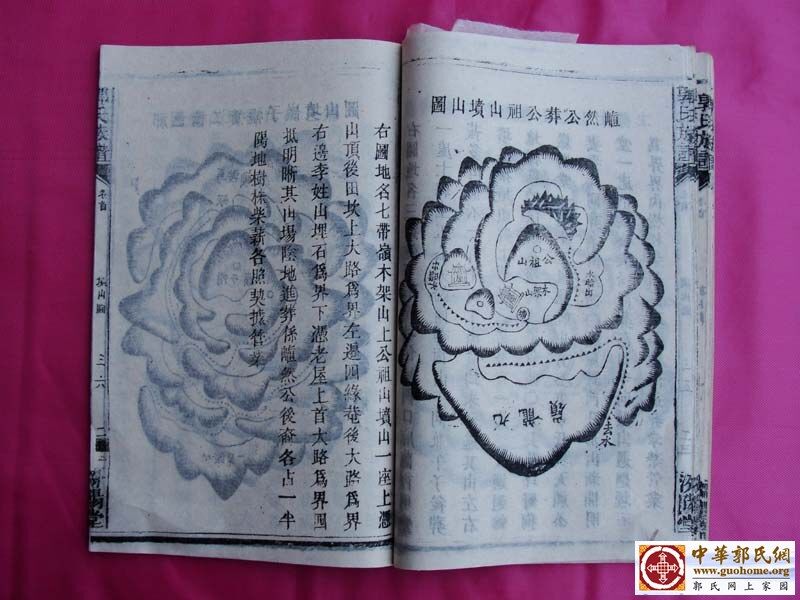 然公葬公祖山墳山圖
公祖山
木架山
九龍嶺
去水
右圖地名七帶嶺木架山上公祖山墳山一座上憑
山頂後田坎上大路爲界左邊四緣菴後大路爲界
右邊李姓山埋石爲界下憑老屋上首大路爲界
抵明晰其山場陰地進葬係然公後裔各占一半
地樹株柴薪各照契據管業
郭氏族譜
卷首
墳山圖
汾陽堂
郭氏族譜
中華郭氏網
www.guohome.org
郭氏网上家园